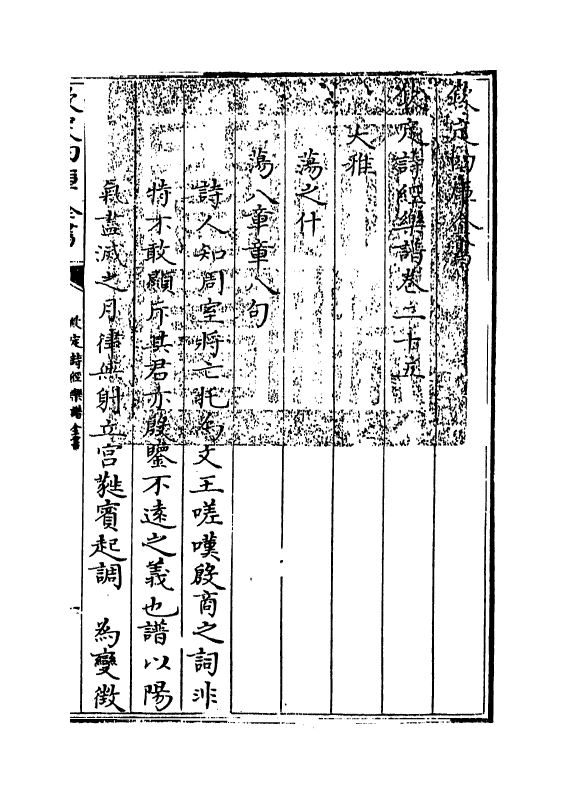 欽定四庫全書
欽定詩經樂譜卷二十五
大雅
蕩之什
蕩八章章八句
詩人知周室將亡托為文王嗟嘆殷商之詞非
特才敢顯斥其君亦殷鑒不遠之義也譜以陽
氣盡滅之月律無射立宫蕤賓起調　為變徵
欽定四庫全書
欽定詩經樂譜全書